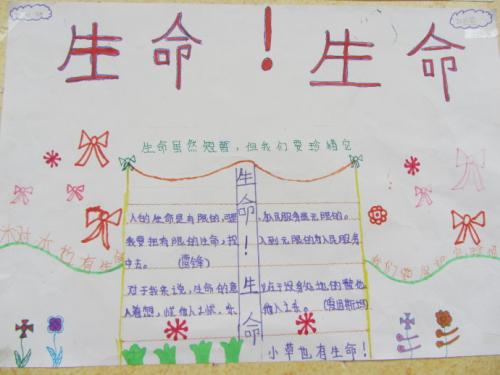 生命！生命
生命虽然短暂，但我们要珍惜它
生命！生命
人的生命是有限的，
人民服务是无限的。
我要把有限的生命，投
入到无限的为人民服务
中去。（雷锋）
对于我来说，生命的意
义在于设身处地的替他
人着想，忧他人之忧，乐
他人之乐。（爱因斯坦）
小草也有生命！
也有生
我们要保护